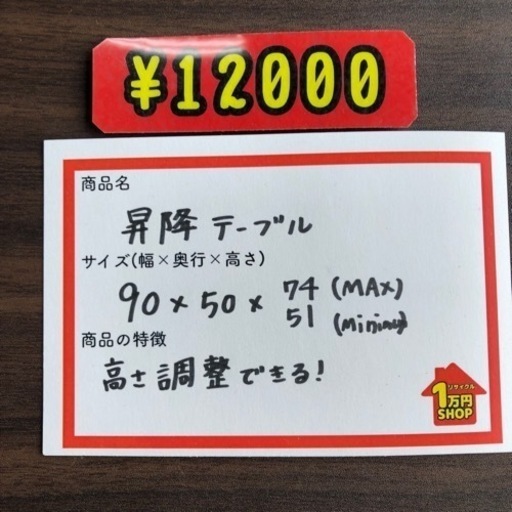 ¥12000
商品名
昇降テーブル
サイズ(幅×奥行×高さ)
90×50×74(MAX)
51
商品の特徴
高さ調整できる!
リサイクル
1万円
SHOP